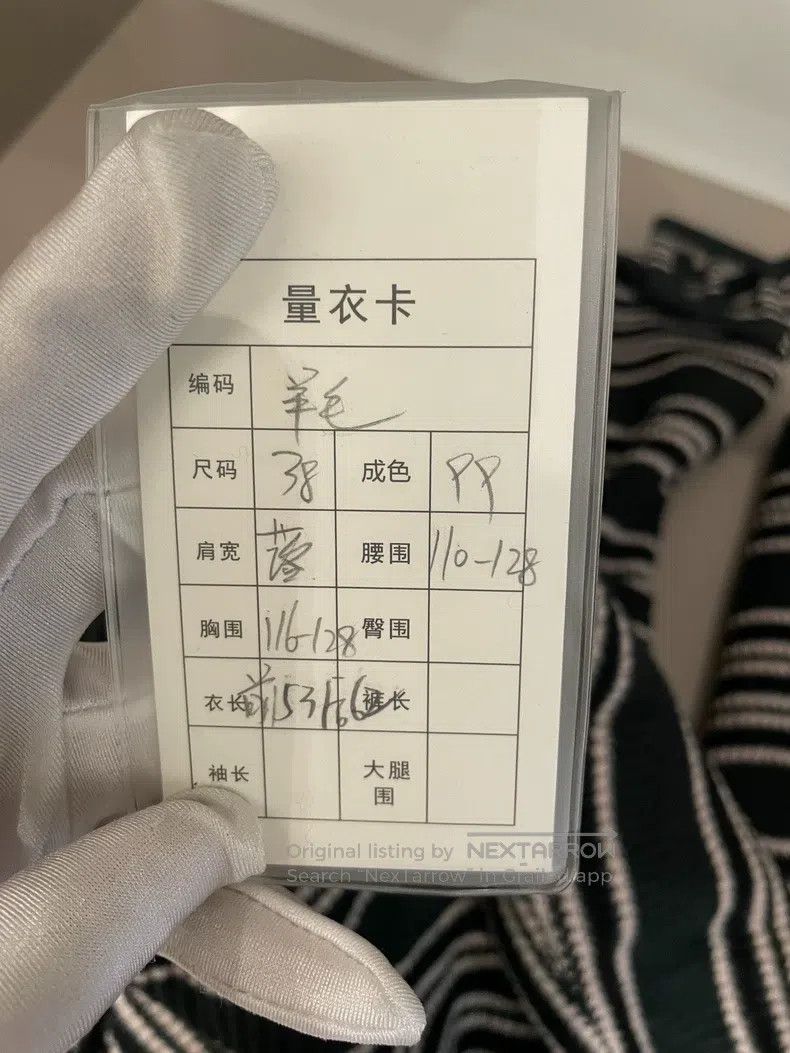 量衣卡
编码 羊毛
尺码 38 成色 99
肩宽 腰围 110-128
胸围 116-128 臀围
衣长 前53后60 裤长
袖长 大腿
围
Original listing by NEXTARROW
Search "NexTarrow" in Grailed app